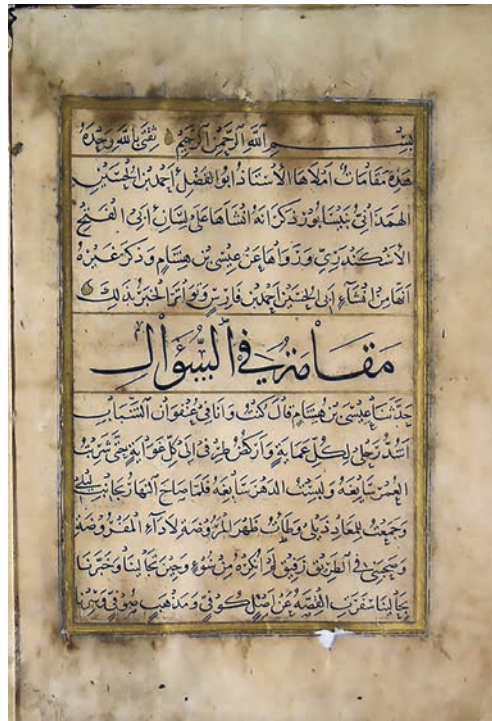 بسم الله الرحمن الرحيم ثقتي بالله وحده
هذه مقامات املاها الأستاذ ابو الفضل احمد بن الحسين
الهمداني بنيسابور ذكر انه انشاها على لسان ابي الفتح
الأسكندري ورواها عن عيسى بن هشام وذكر غيره
انها من انشاء ابي الحسين احمد بن فارس وتواتر الخبر بذلك
مقامة في السؤال
حدثنا عيسى بن هشام قال كنت وانا في عنفوان الشباب
اشد رحلي لكل عماية واركض طرفي الى كل غواية حتى شربت
العمر سايغه ولبست الدهر سابغه فلما صاح النهار بجانب ليلي
وجمعت للمعاد ذيلي وطأت ظهر المروضة لاداء المفروضة
وصحبني في الطريق رفيق لم انكره من سوء وحين تجالينا وخبرنا
بحالينا سفرت القصه عن اصل كوفي ومذهب صوفي وسرنا